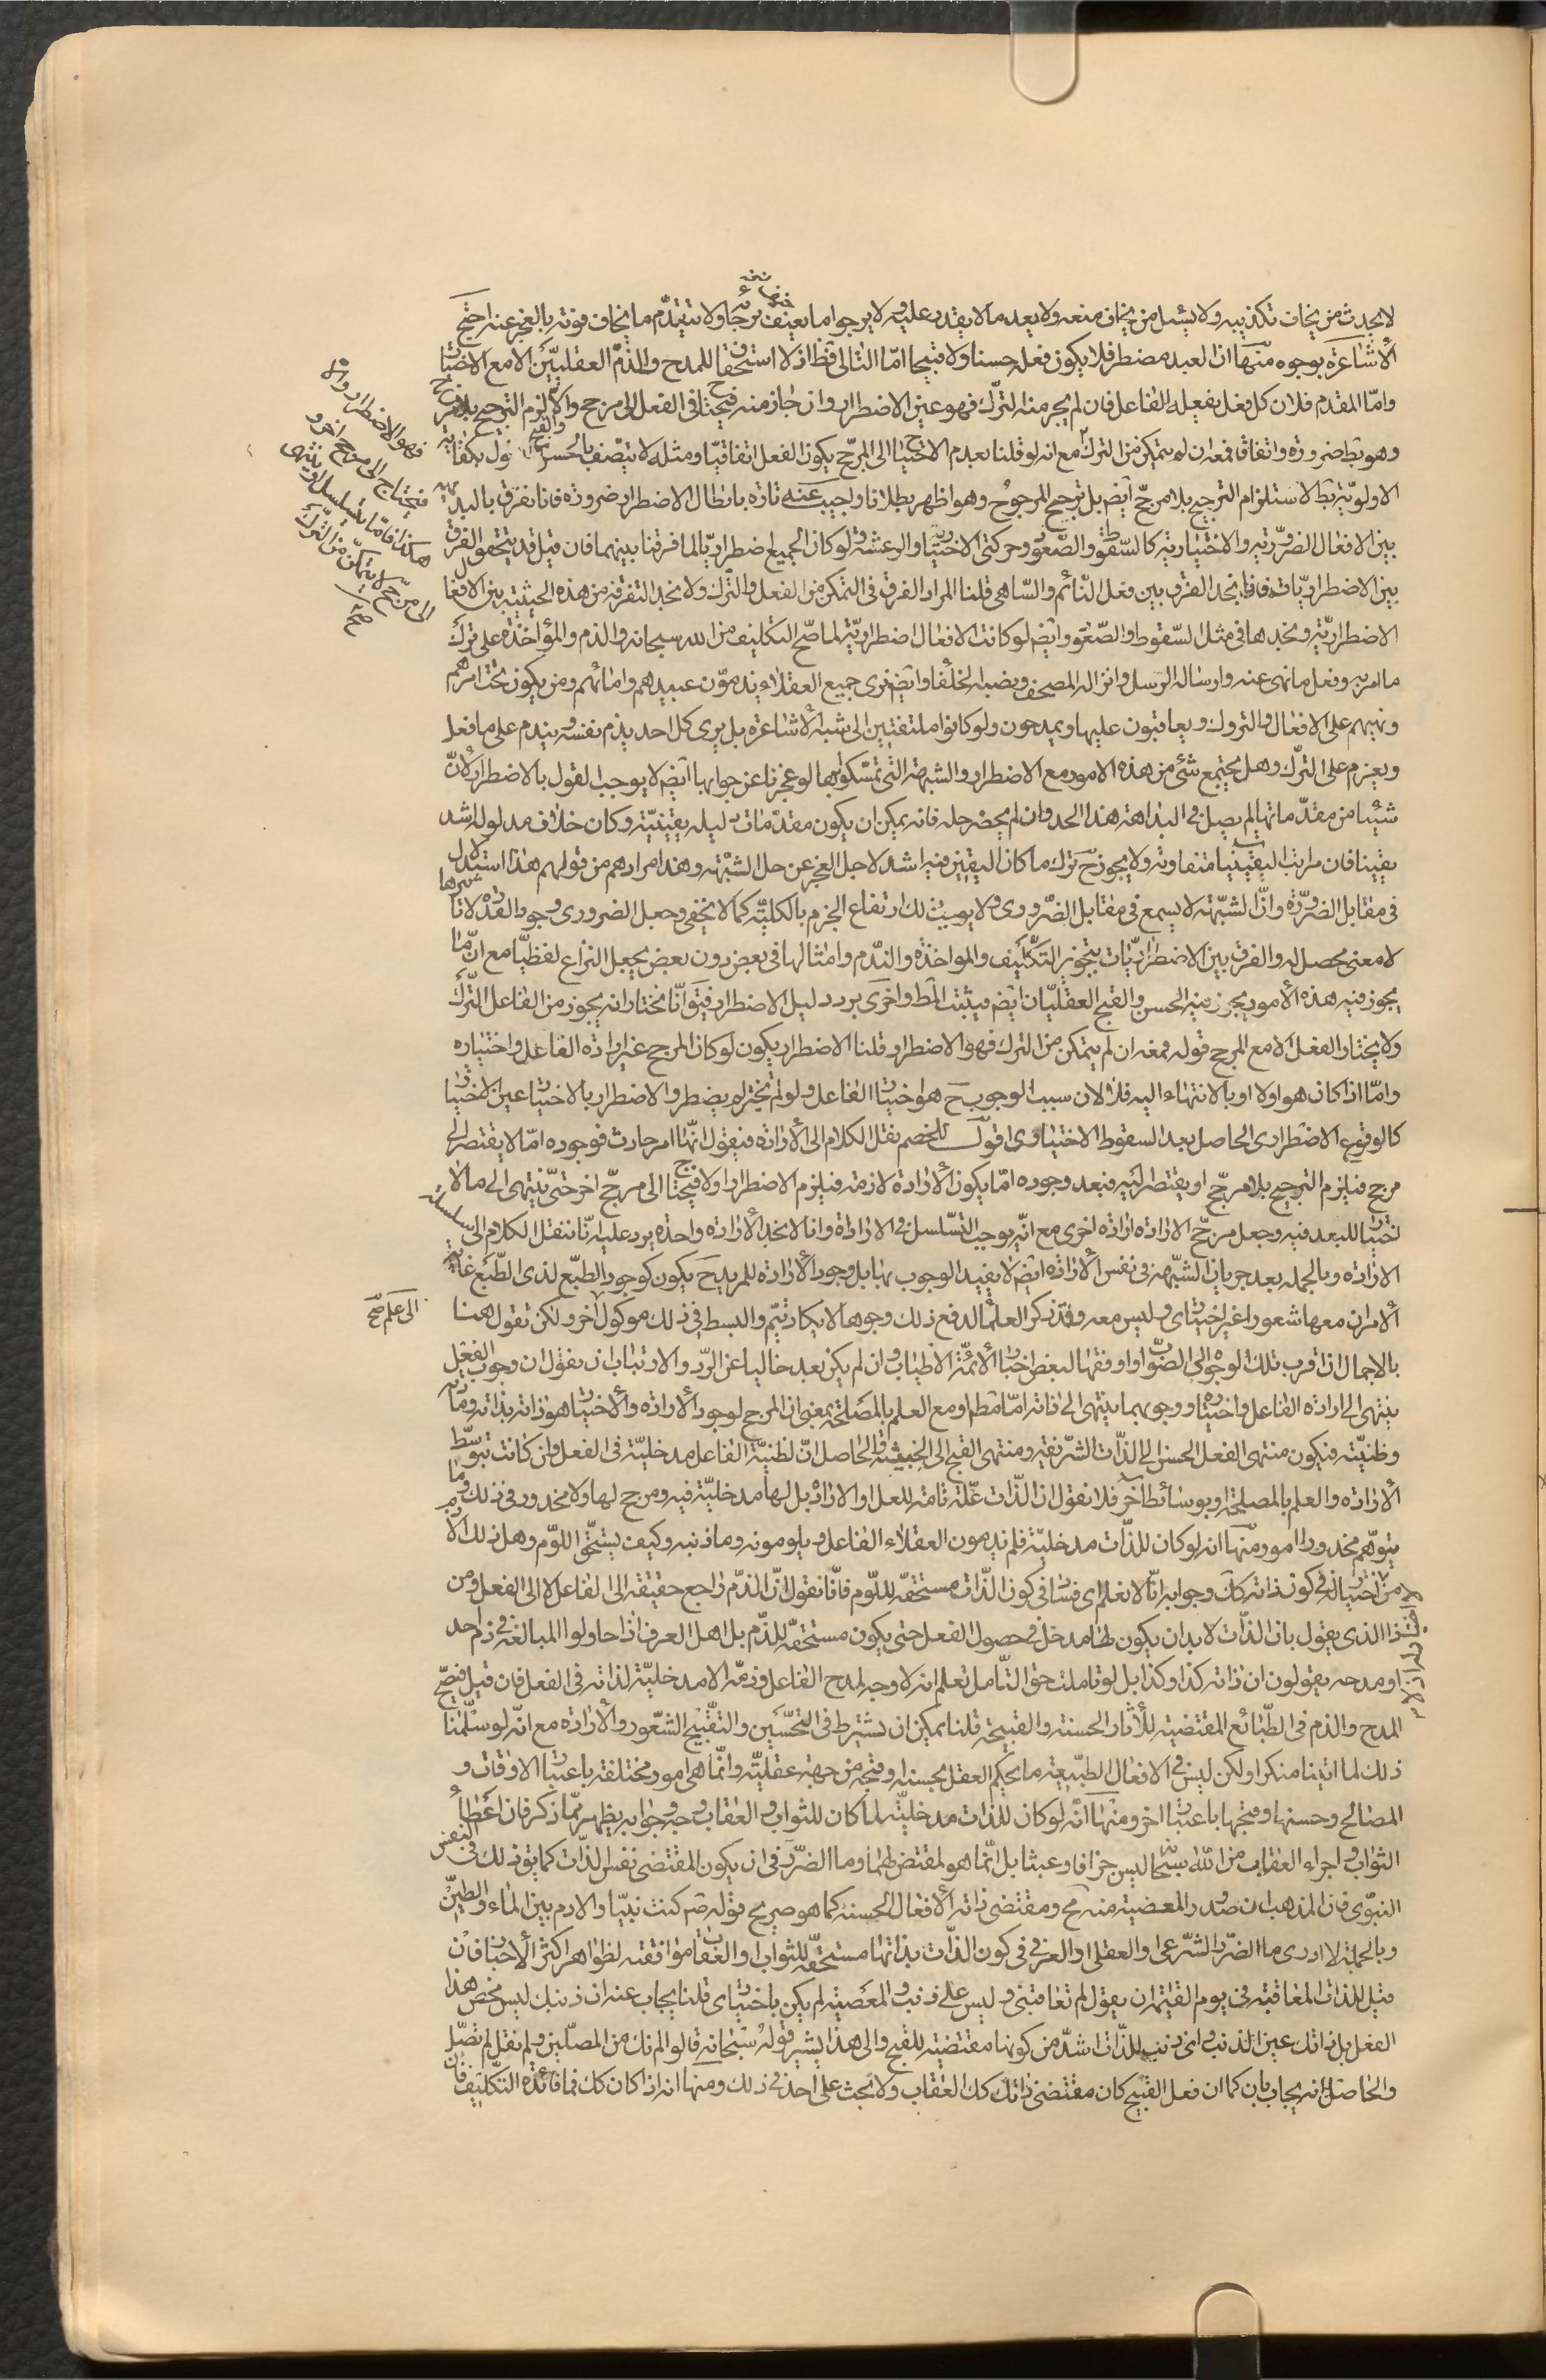 لا يحدث من يخاف تكذيبه ولا يسئل من يخاف منعه ولا يعد ما لا يقدر عليه ولا يرجو ما يعنف برجائه ولا يتقدّم ما يخاف فوته بالعجز عنه احتج
الأشاعرة بوجوه منها ان العبد مضطر فلا يكون فعله حسنا ولا قبيحا امّا التالى فظ اذ لا استحقاق للمدح والذم العقليّين الا مع الاختيار
وامّا المقدم فلان كل فعل يفعله الفاعل فان لم يجز منه الترك فهو عين الاضطرار وان جاز منه فيحتاج فى الفعل الى مرجح والا لزم الترجيح بلا مرجح
وهو بط ضرورة واتفاقا فمعه ان لم يتمكن من الترك مع انه لو قلنا بعدم الاحتياج الى المرجّح يكون الفعل اتفاقيّا ومثله لا يتصف بالحسن والقبح
الاولويّة بط لاستلزام الترجيح بلا مرجّح ايضم بل ترجيح المرجوح وهو اظهر بطلانا واجيب عنه تارة بابطال الاضطرار ضرورة فانا نفرق بالبديهة
بين الافعال الضروريّة والاختيارية كالسّقوط والصّعود وحركتى الاختيار والرعشة ولو كان الجميع اضطراريّا لما فرقنا بينهما فان قيل قد يتحقق الفرق
بين الاضطراريّات فانا نجد الفرق بين فعل النّائم والسّاهى قلنا المراد الفرق فى التمكن من الفعل والترك ولا نجد التفرقة من هذه الحيثية بين الافعال
الاضطراريّة ونجدها فى مثل السّقوط والصّعود وايضم لو كانت الافعال اضطراريّة لما صّح التكليف من الله سبحانه والذم والمؤاخذة على ترك
ما امر به وفعل ما نهى عنه وارساله الرّسل وانزاله المصحف ونصبه الخلفاء وايضم نرى جميع العقلاء يذمّون عبيدهم واماثهم ومن يكون تحت امرهم
ونهيهم على الافعال والتروك ويعاقبون عليها ويمدحون ولو كانوا ملتفتين الى شبه الأشاعرة بل يرى كل احد يذم نفسه ويندم على ما فعل
ويعزم على الترك وهل يجتمع شئ من هذه الامور مع الاضطرار والشبهة التى تمسّكوا بها لو عجزنا عن جوابها ايضم لا يوجب القول بالاضطرار لأنّ
شيئا من مقدّماتها لم يصل فى البداهة هذا الحد وان لم يحضر حله فانه يمكن ان يكون مقدّمات دليله يقينيّة وكان خلاف مدلوله اشد
يقينا فان مراتب اليقينيات متفاوته ولا يجوز ح ترك ما كان اليقين فيه اشد لاجل العجز عن حل الشبهة وهذا مرادهم من قولهم هذا استدلال
فى مقابل الضرورة وانّ الشبهة لا يسمع فى مقابل الضّرورى ولا يوجب ذلك ارتفاع الجزم بالكليّة كما لا يخفى وجعل الضرورى وجود القدرة لا تأثيرها
لا معنى محصل له والفرق بين الاضطراريّات بتجويز التكليف والمواخذة والندّم وامثالها فى بعض دون بعض يجعل النزاع لفظيّا مع انّ ما
يجوز فيه هذه الأمور يجرى فيه الحسن والقبح العقليّان ايضم فيثبت المط واخرى برد دليل الاضطرار فيقول انّا نختار انه يجوز من الفاعل الترك
ولا يختار الفعل الا مع المرجح قوله فمعه ان لم يتمكن من الترك فهو الاضطرار قلنا الاضطرار يكون لو كان المرجح غير ارادة الفاعل واختياره
وامّا اذا كان هو اولا او بالانتهاء اليه فلا لان سبب الوجوب ح هو اختيار الفاعل ولو لم يختر لم يضطر والاضطرار بالاختيار عين الاختيار
كالوقوع الاضطرارى الحاصل بعد السقوط الاختيارى اقول للخصم نقل الكلام الى الأرادة فيقول انّها امر حادث فوجوده امّا لا يفتقر الى
مرجح فيلزم الترجيح بلا مرجّح او يفتقر اليه فبعد وجوده امّا يكون الأرادة لازمة فيلزم الاضطرار اولا فيحتاج الى مرجّح اخر حتّى ينتهى الى ما لا
اختيار للعبد فيه وجعل مرجّح الارادة ارادة اخرى مع انّه يوجب التسّلسل فى الارادة وانا لا نجد الأرادة واحدة يرد عليه انّا ننقل الكلام الى سلسلة
الارادة وبالجملة بعد جريان الشّبهة فى نفس الأرادة ايضم لا يفيد الوجوب بها بل وجود الأرادة للمريد ح يكون كوجود الطبّع لذى الطّبع غاية
الأمر ان معها شعورا غير اختيارى وليس معه وقد ذكر العلماء لدفع ذلك وجوها لا يكاد يتم والبسط فى ذلك موكول اخر ولكن نقول هنا
بالاجمال اذ اقرب تلك الوجوه الى الصّواب واوفقها لبعض اخبار الأئمّة الاطياب وان لم يكن بعد خاليا عن الرّد والارتياب ان نقول ان وجوب الفعل
ينتهى الى ارادة الفاعل واختياره ووجوبهما ينتهى الى ذاته امّا مط او مع العلم بالمصلحة بمعنى ان المرجح لوجود الأرادة والاختيار هو ذاته بذاته
وظنيّته فيكون منتهى الفعل الحسن الى الذّات الشّريفة ومنتهى القبح الى الخبيثة والحاصل انّ لظنيّة الفاعل مدخليّة فى الفعل وان كانت بتوسّط
الأرادة والعلم بالمصلحة او بوسائط اخر فلا نقول انّ الذّات علّة تامة للفعل او الارادة بل لها مدخليّة فيه ومرجح لها ولا محذور فى ذلك وما
يتوّهم محذورا امور منها انه لو كان للذّات مدخليّة فلم يذمون العقلاء الفاعل ويلومونه وما ذنبه وكيف يستحّق اللوّم وهل ذلك الا
من اختياله فى كون ذاته كك وجوابه انّا لا نعلم اى فساد فى كون الذّات مستحقه للوّم فانّا نقول انّ الذّم راجع حقيقة الى الفاعل لا الى الفعل ومن
ذا الذى يقول بان الذّات لا بد ان يكون لها مدخل فى حصول الفعل حتى يكون مستحقه للذّم بل اهل العرف اذا حاولوا المبالغة فى ذم احد
او مدحه يقولون ان ذاته كذا وكذا بل لو تاملت حق التّامل تعلم انه لا وجه لمدح الفاعل وذمّه الا مدخليّة لذاته فى الفعل فان قيل فيصّح
المدح والذم فى الطّبائع المقتضية للأثار الحسنة والقبيحة قلنا يمكن ان يشترط فى التحسّين والتقّبيح الشّعور والأرادة مع انّه لو سلّمنا
ذلك لما اتينا منكرا ولكن ليس فى الافعال الطبّيعية ما يحكم العقل بحسنه او قبحه من جهة عقليّة وانّما هى امور مختلفة باعتبار الاوقات و
المصالح وحسنها وقبحها باعتبار اخر ومنها انّه لو كان للذات مدخليّة لما كان للثواب والعقاب وجه وجوابه يظهر ممّا ذكر فان اعطاء
الثواب واجراء العقاب من الله سبحانه ليس جزافا وعبثا بل انّما هو لمقتض لهما وما الضّرر فى ان يكون المقتضى نفس الذّات كما يقى ذلك فى النفس
النبوّى فان المذهب ان صدور المعصية منه مح ومقتضى ذاته الأفعال الحسنة كما هو صريح قوله ص كنت نبيّا والادم بين الماء والطين
وبالجملة لا ادرى ما الضّرر الشّرعى او العقلى او العرفى فى كون الذّات بذاتها مستحقّه للثواب او العقاب موافقته لظواهر اكثر الأخبار فان
قيل للذات المعاقبة فى يوم القيامة ان يقول لم تعاقبنى وليس على ذنب والمعصية لم يكن باختيارى قلنا يجاب عنه ان ذنبك ليس محض هذا
الفعل بل ذاتك عين الذنب واى ذنب للذّات اشدّ من كونها مقتضية للقبح والى هذا يشير قوله سبحانه قالوا لم نك من المصلّين ولم نقل لم نصّل
والحاصل انه يجاب بان كما ان فعل القبيح كان مقتضى ذاتك كك العقاب ولا بحث على احد فى ذلك ومنها انه اذا كان كك فما فائدة التكّليف فان
فهو الاضطرار والا
فيحتاج الى مرجح اخر و
هكذا فامّا يتسلسل او ينتهى
الى مرجّح لا يتمكّن من الترك
صح
الى علم صح